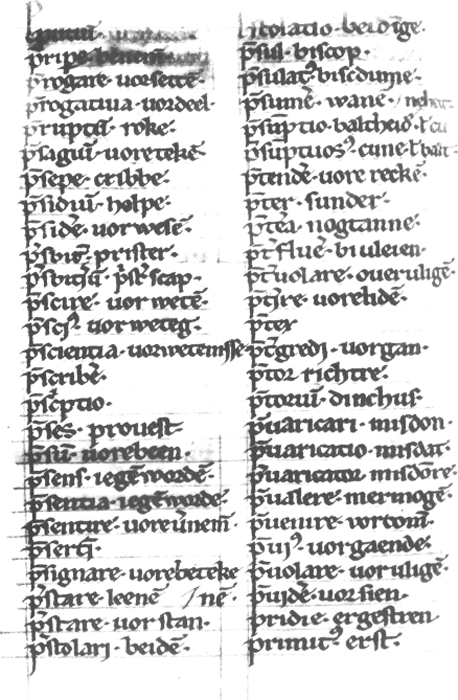 p̄rogare · uorsettē ·
p̄rogatiua · uordeel ·
p̄ruptū · roke ·
p̄sagiū · uoretekē ·
p̄sepe · cribbe ·
p̄sidiū · holpe ·
p̄sidē · uorwesē ·
prister ·
scap ·
p̄scire · uor wetē ·
uor weteg ·
p̄scientia · uorwetenisse
p̄scribē ·
p̄scptio ·
p̄ses · prouest
p̄sū · uorebeen ·
p̄sens · iegēwordē ·
p̄sentia · iegēworde ·
p̄sentire · uoreūnemē ·
p̄signare · uorebeteke
p̄stare · leenē / nē ·
p̄stare · uor stan ·
p̄stolari · beidē ·
p̄sul · biscop ·
biscdume ·
p̄sumē · wanē ·
p̄suptio · baltheid ·
p̄tendē · uore reckē ·
p̄ter · sunder ·
p̄tea · nogtanne ·
biuleien ·
uolare · oueruligē ·
uorelidē ·
p̄tex
p̄tgredi · uorgan ·
p̄tor · richtre ·
p̄toriū · dinchus ·
p̄uaricari · misdon ·
p̄uaricatio · misdat ·
p̄uaricator · misdōre ·
p̄ualere · mermogē ·
p̄uenire · vorcomē ·
uorgaende ·
p̄uolare · uoruligē ·
p̄uidē · uorsien ·
pridie · ergestren
erst ·